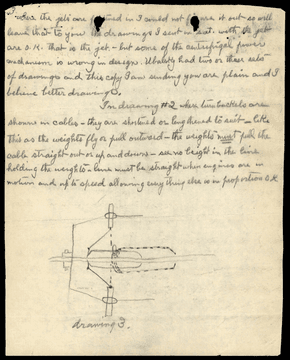 the jets are in I could not figure it out so will
leave that to you the drawings I sent in suit. with the jets
are O.K. that is the jet - but some of the centrifugal power
mechanism is wrong in design. had two or three sets
of drawings and this copy I am sending you are plain and I
believe better drawing 3.
In drawing #2 where turnbuckles are
shown in cables - they are shortened or lengthened to suit - like
this as the weights fly or pull outward - the weights must pull the
cable straight out or up and down - see no height in the line
holding the weights - line must be straight when engines are in
motion and up to speed allowing everything else is in proportion O.K
drawing 3.